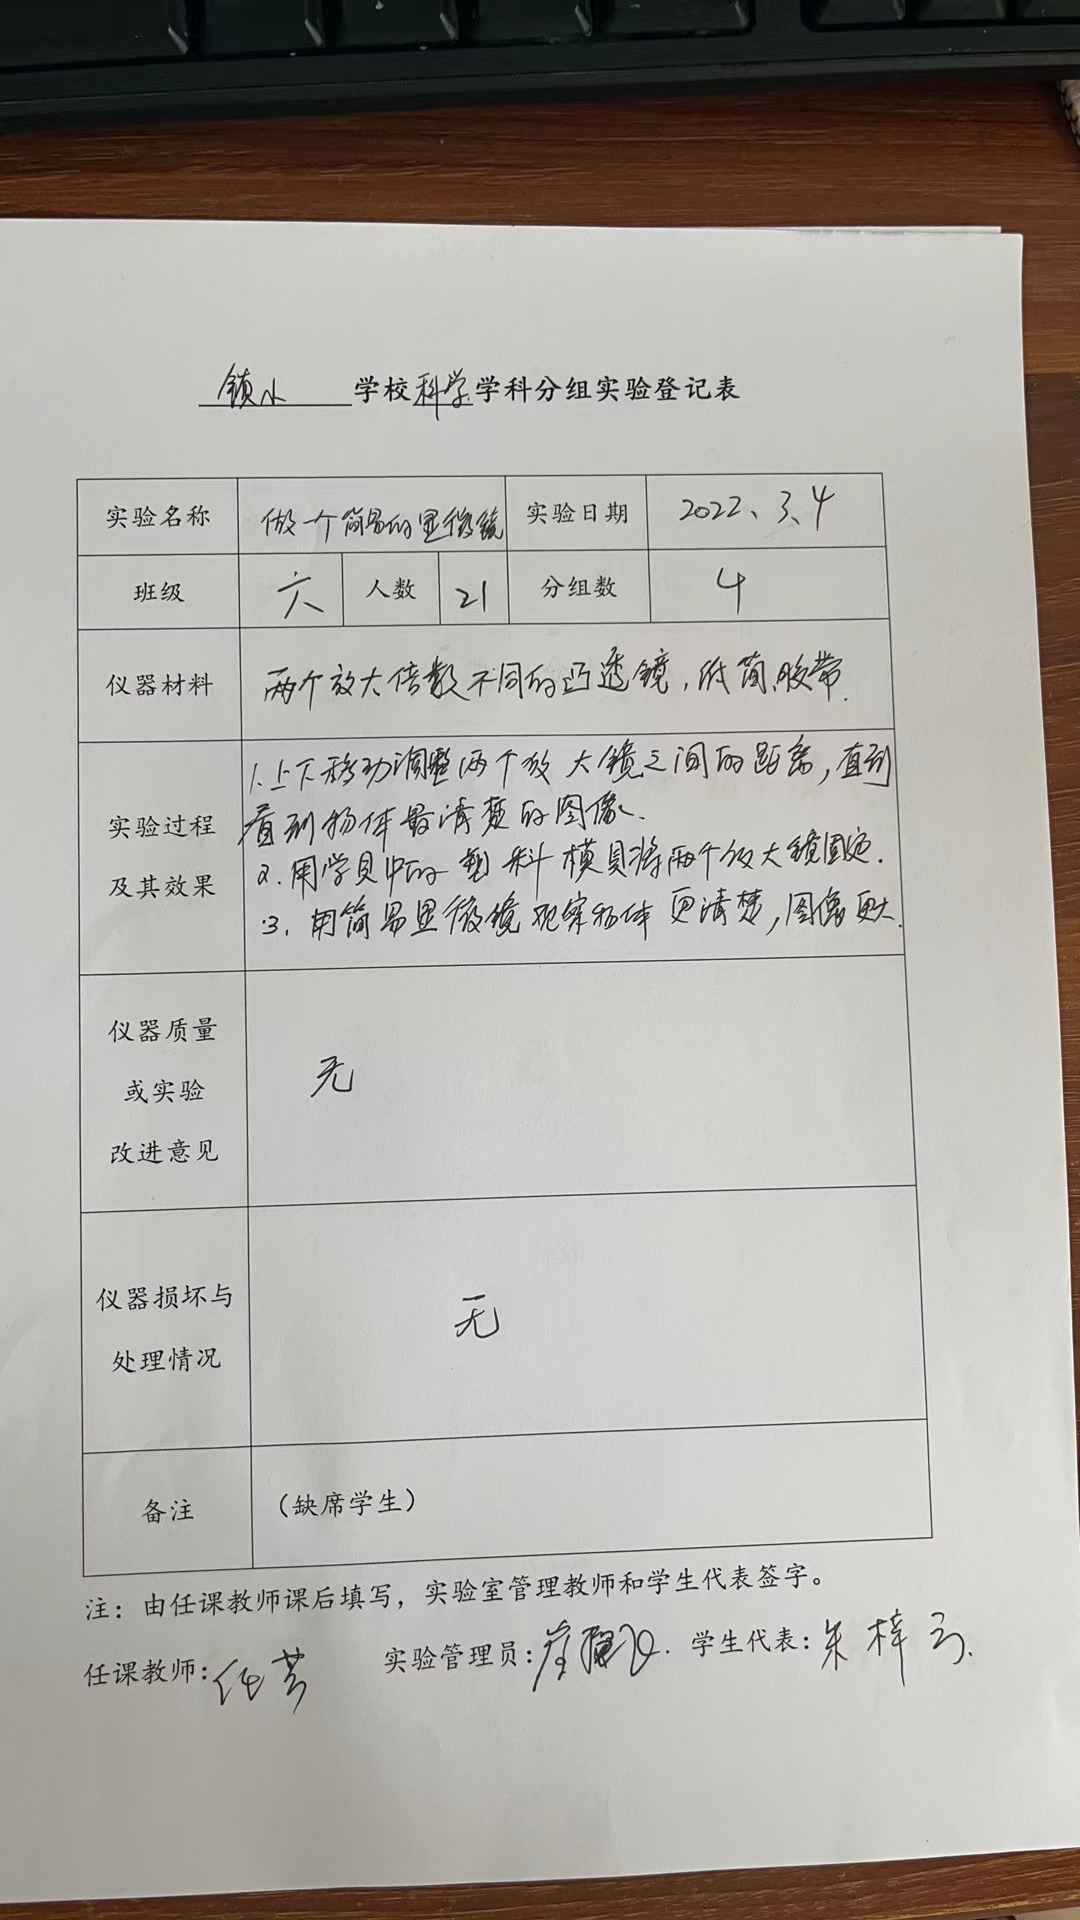 镇水 学校科学学科分组实验登记表
实验名称 做一个简易的显微镜 实验日期 2022、3、4
班级 六 人数 21 分组数 4
仪器材料 两个放大倍数不同的凸透镜，纸筒、胶带.
1.上下移动调整两个放大镜之间的距离，直到
看到物体最清楚的图像.
实验过程
及其效果
2.用学具中的塑料模具将两个放大镜固定.
3.用简易显微镜观察物体更清楚，图像更大.
仪器质量
或实验
改进意见
无
仪器损坏与
处理情况
无
备注 （缺席学生）
注：由任课教师课后填写，实验室管理教师和学生代表签字。
任课教师: 任芸 实验管理员: 学生代表: 朱梓